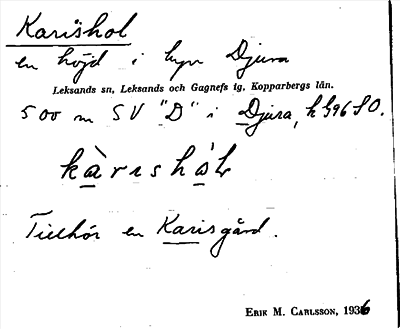 Karishol
en höjd i byn Djura
Leksands sn, Leksands och Gagnefs tg, Kopparbergs län.
500 m SV "D" i Djura, k 396 SO.
kàrishòl
Tillhör en Karisgård.
ERIK M. CARLSSON, 1936